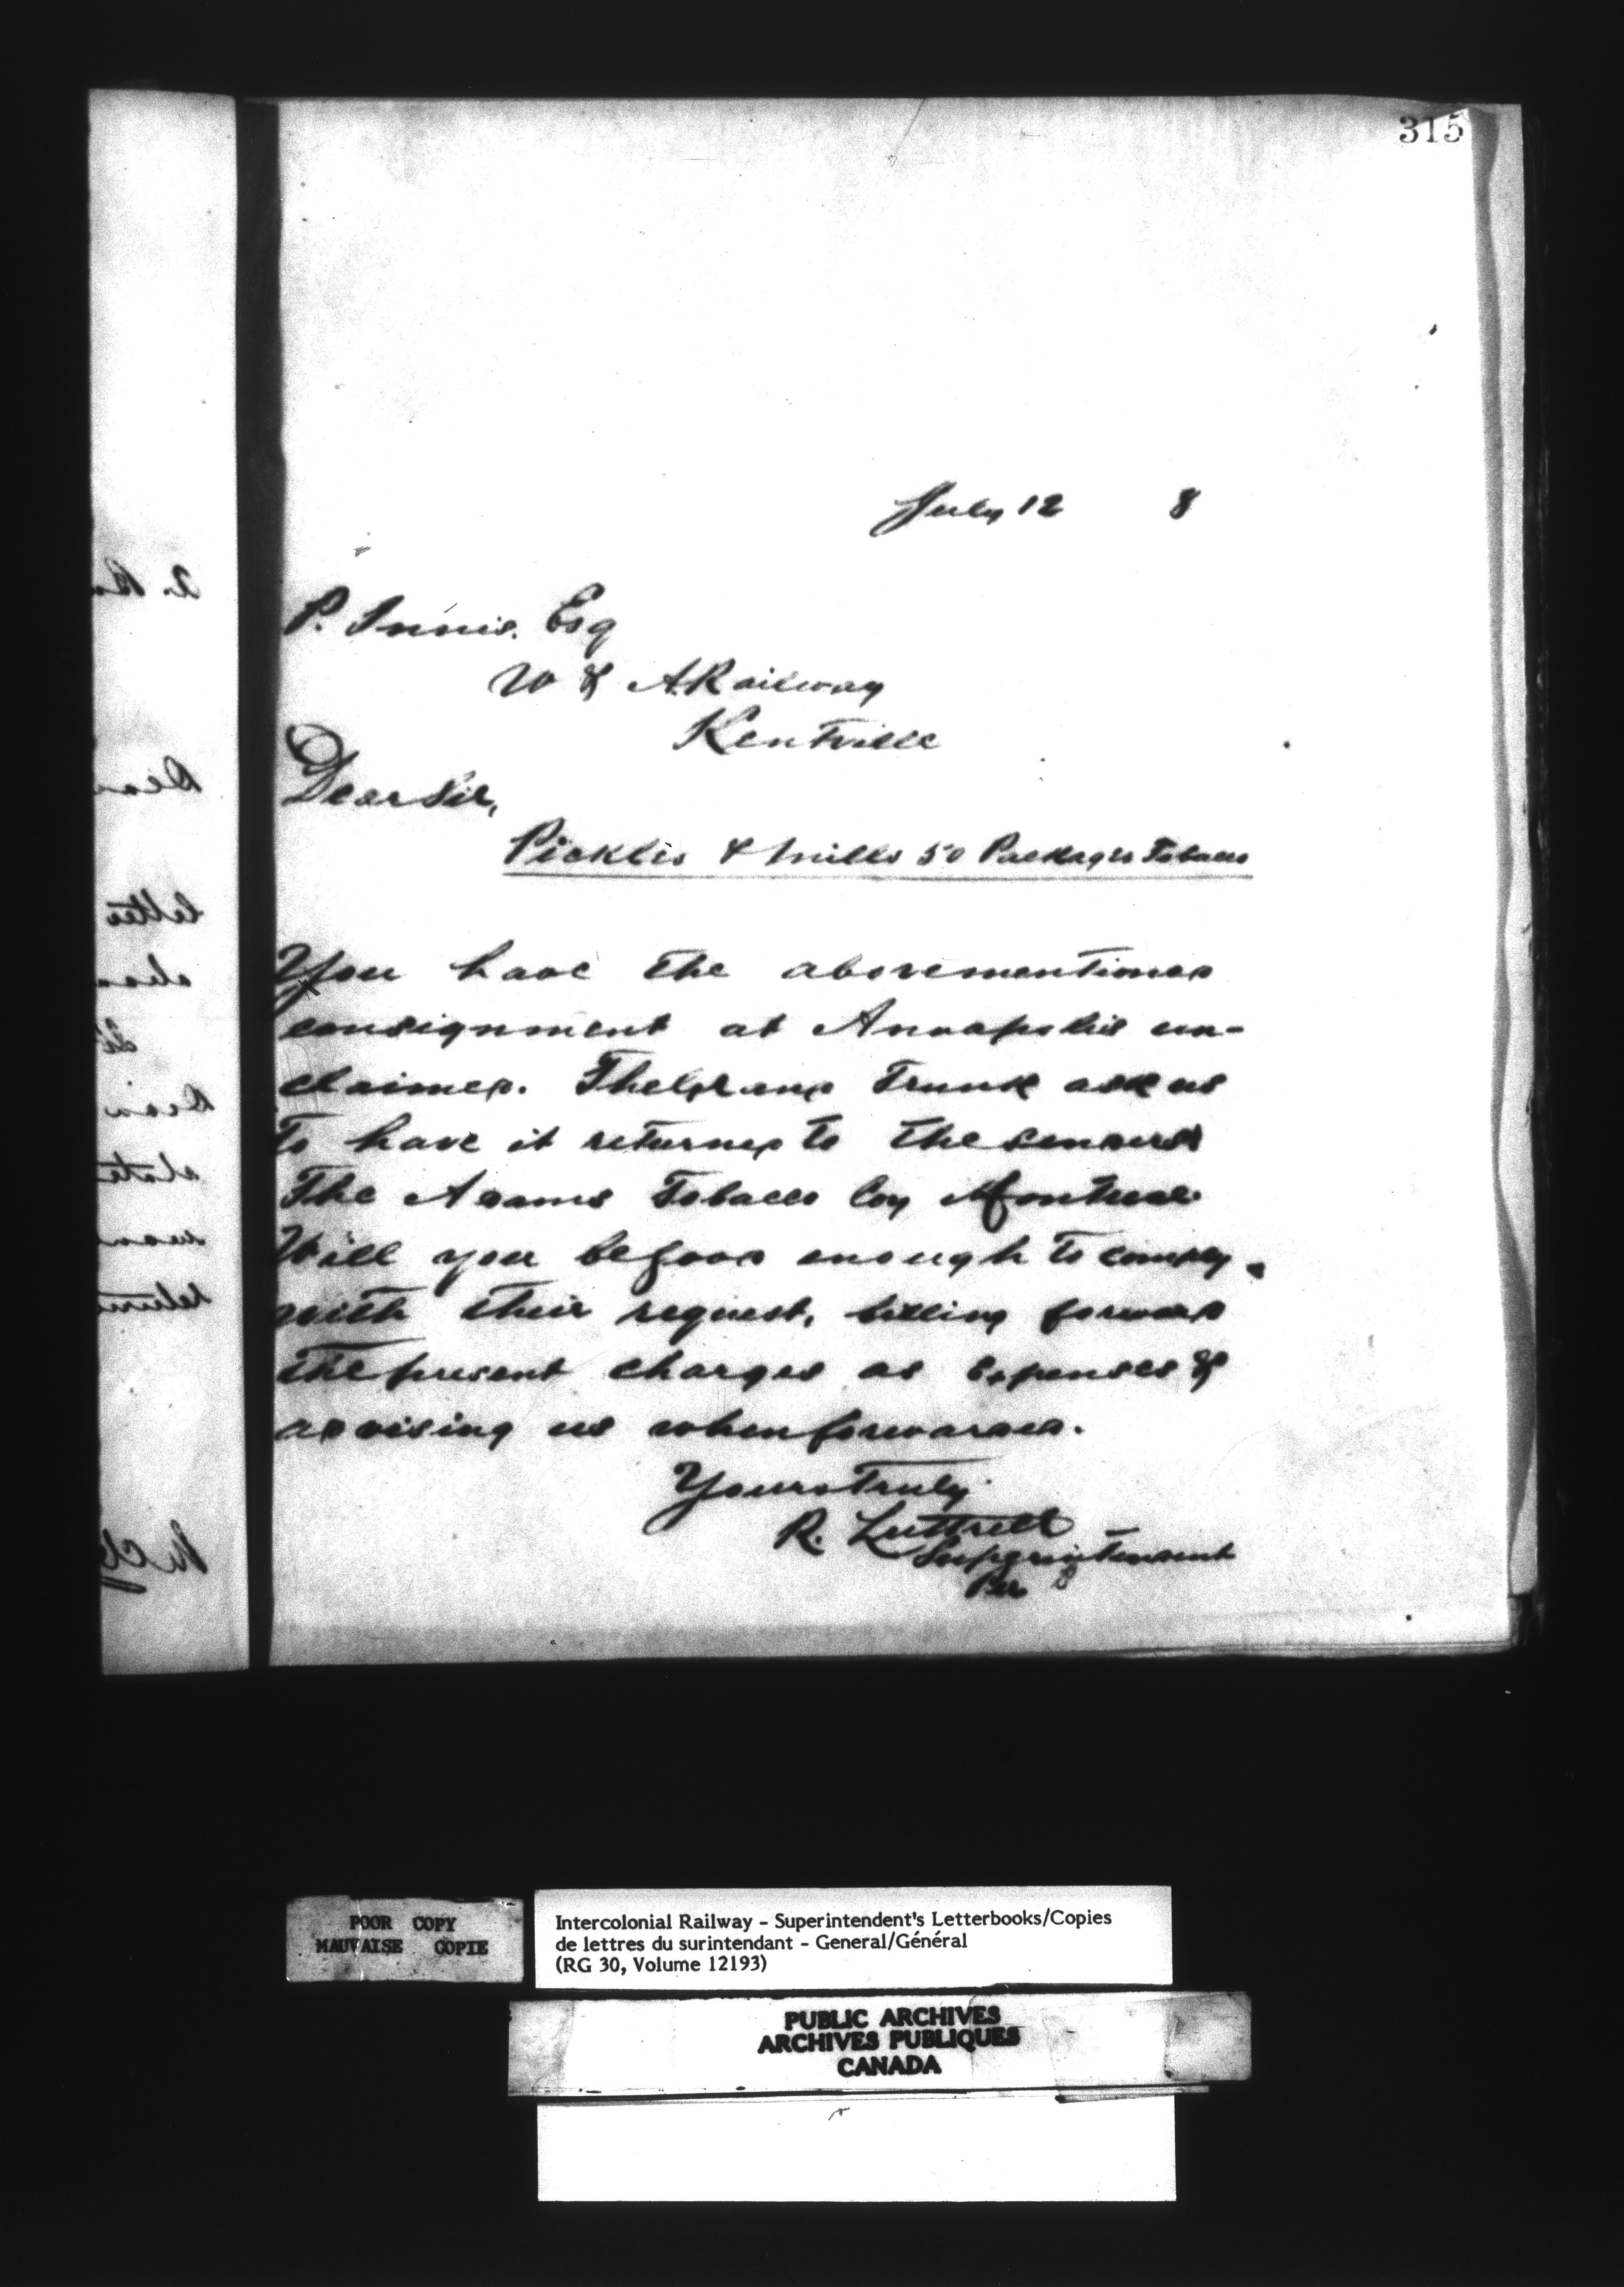 315
July 12 8
P. Innis. Esq
W & A Railway
Kentville
Dear Sir,
Pickles & Mills 50 Packages Tobacco
You have the abovementioned
consignment at Annapolis un-
claimed. The Grand Trunk ask us
to have it returned to the senders
The Adams Tobacco Coy Montreal.
Will you be good enough to comply
with their request, billing forward
the present charges as expenses &
advising us when forwarded.
Yours Truly
R. Luttrell
Superintendent
Per
POOR COPY
MAUVAISE COPIE
Intercolonial Railway - Superintendent's Letterbooks/Copies
de lettres du surintendant - General/Général
(RG 30, Volume 12193)
PUBLIC ARCHIVES
ARCHIVES PUBLIQUES
CANADA